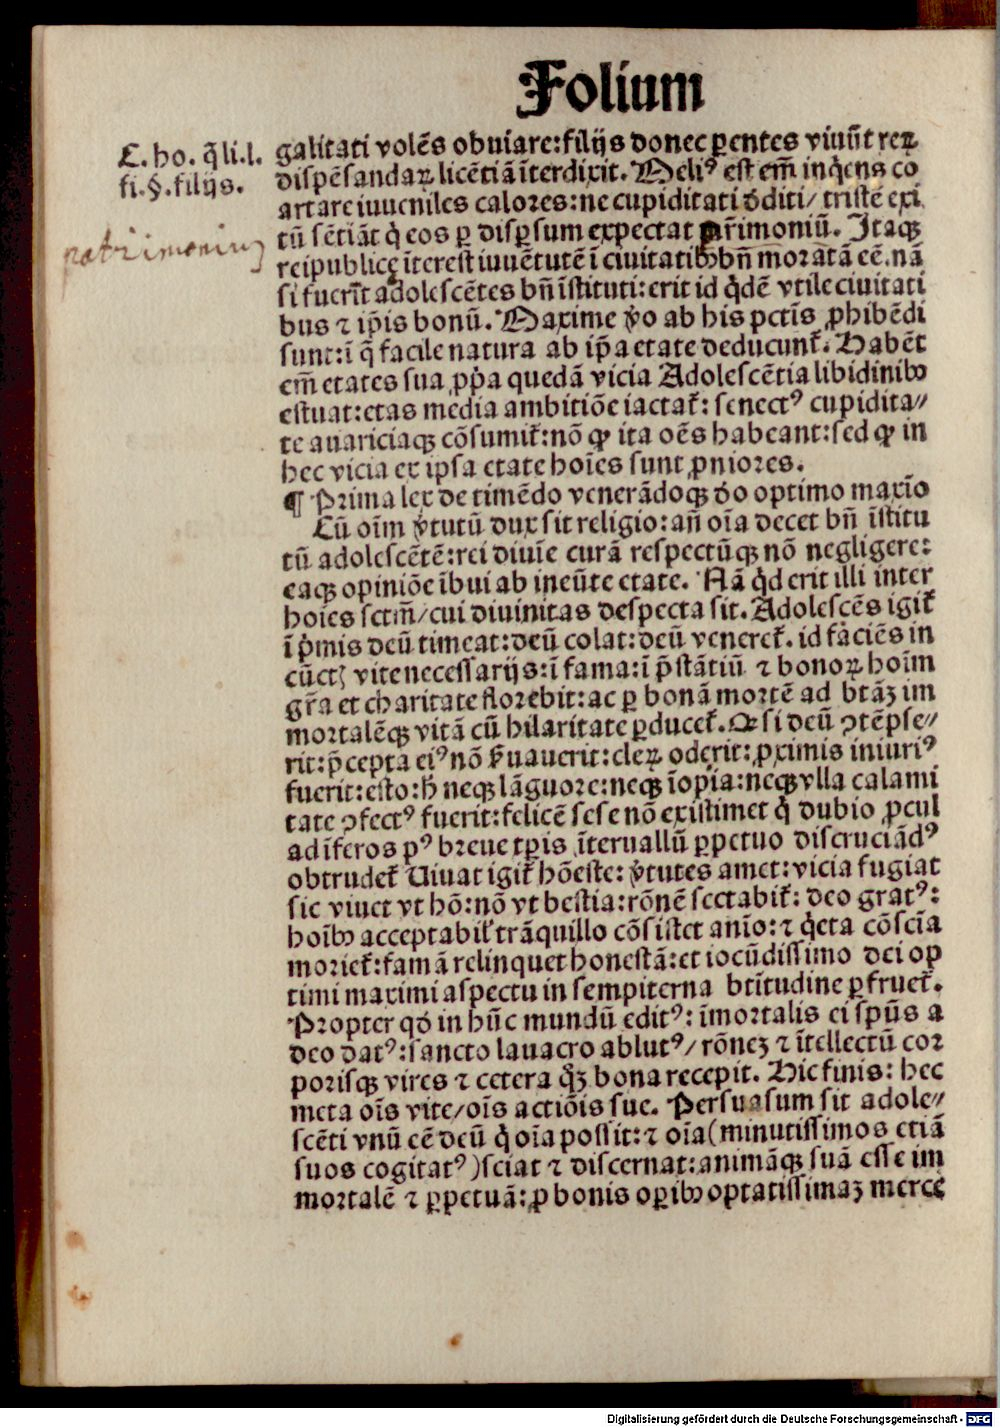 Folium
C. ho. q̄li. l.
fi. §. filijs.
patrimoniuʒ
galitati volēs obuiare: filijs donec ꝑentes viuūt reꝝ
dispēsandaꝝ licētiā īterdixit. Meliꝰ est em̄ inq̇ens co
artare iuueniles calores: ne cupiditati dediti/ tristē exi
tū sētiāt q̇ eos ꝑ disꝑsum expectat pr̄imoniū. Itaqꝫ
reipublicę īterest iuuētutē ī ciuitatibꝰ bn̄ moratā eē. nā
si fuerīt adolescētes bn̄ īstituti: erit id q̇dē vtile ciuitati
bus ⁊ ip̄is bonū. Maxime v̇o ab his pctīs ꝓhibēdi
sunt: ī q̄ facile natura ab ip̄a etate deducunt̄. Habēt
em̄ etates sua ꝓp̄a quedā vicia Adolescētia libidinibꝰ
estuat: etas media ambitiōe iactat̄: senectꝰ cupidita⸗
te auariciaqꝫ cōsumit̄: nō ꝙ ita oēs habeant: sed ꝙ in
hec vicia ex ipsa etate hoīes sunt ꝓniores.
¶ Prima lex de timēdo venerādoqꝫ deo optimo maxīo
Cū oīm v̇tutū dux sit religio: an̄ oīa decet bn̄ īstitu
tū adolescētē: rei diuīe curā respectūqꝫ nō negligere:
eaqꝫ opiniōe ībui ab ineūte etate. Nā q̇d erit illi inter
hoīes sctm̄/ cui diuinitas despecta sit. Adolescēs igit̄
ī pi̇mis deū timeat: deū colat: deū veneret̄. id faciēs in
cūctꝭ vite necessarijs: ī fama: ī p̄stātiū ⁊ bonoꝝ hoīm
gr̄a et charitate florebit: ac ꝑ bonā mortē ad btāꝫ im
mortalēqꝫ vitā cū hilaritate ꝑducet̄. Qꝫ si deū ꝯtēpse⸗
rit: p̄cepta eiꝰ nō ẜuauerit: cleꝝ oderit: ꝓximis iniuriꝰ
fuerit: esto: h̄ neqꝫ lāguore: neqꝫ īopia: neqꝫ vlla calami
tate ꝯfectꝰ fuerit: felicē sese nō existimet q̇ dubio ꝓcul
ad īferos pꝰ breue tp̄is īteruallū ꝑpetuo discruciādꝰ
obtrudet̄ Uiuat igit̄ hōeste: v̇tutes amet: vicia fugiat
sic viuet vt hō: nō vt bestia: rōnē sectabit̄: deo gratꝰ:
hoībꝰ acceptabil̄ trāquillo cōsistet anīo: ⁊ q̇eta cōscīa
moriet̄: famā relinquet honestā: et iocūdissimo dei op
timi maximi aspectu in sempiterna btītudine ꝑfruet̄.
Propter qd̄ in hūc mundū editꝰ: īmortalis ei spūs a
deo datꝰ: sancto lauacro ablutꝰ/ rōneꝫ ⁊ ītellectū cor
porisqꝫ vires ⁊ cetera q̄ꝫ bona recepit. Hic finis: hec
meta oīs vite/ oīs actiōis sue. Persuasum sit adole⸗
scēti vnū eē deū q̇ oīa possit: ⁊ oīa (minutissimos etiā
suos cogitatꝰ) sciat ⁊ discernat: animāqꝫ suā esse im
mortalē ⁊ ꝑpetuā: ꝓ bonis oꝑibꝰ optatissimaꝫ merce
Digitalisierung gefördert durch die Deutsche Forschungsgemeinschaft - DFG